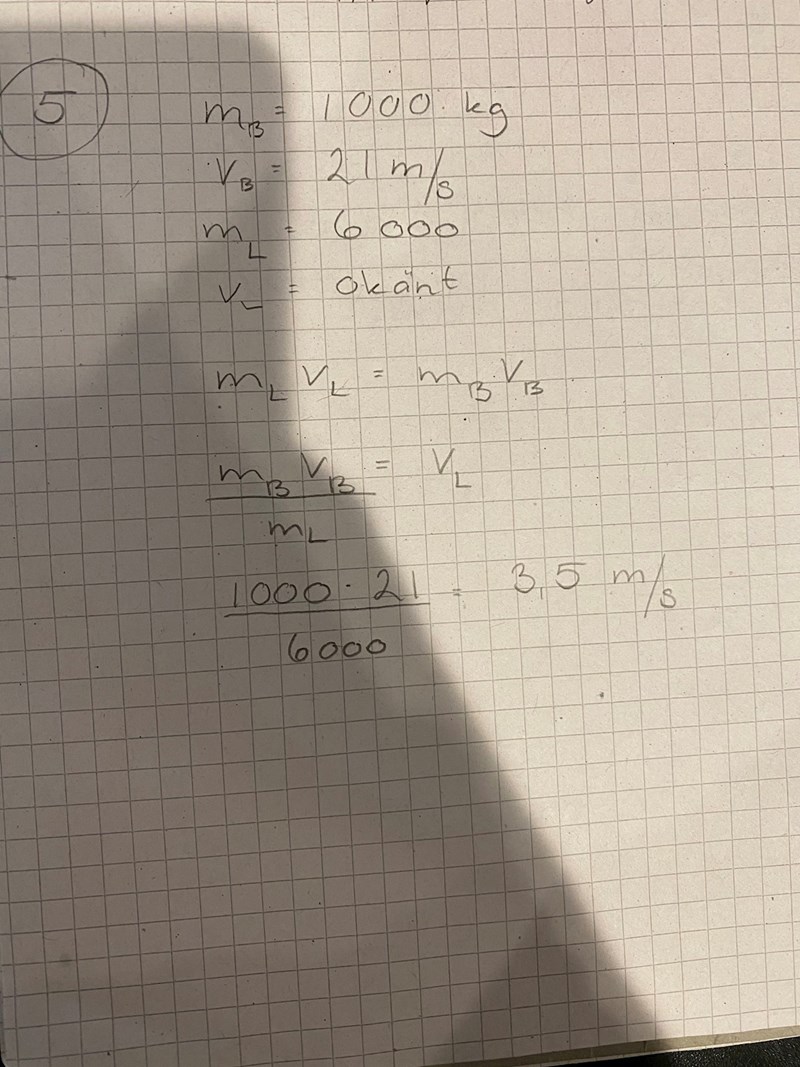 5
m_B = 1000 kg
V_B = 21 m/s
m_L = 6000
V_L = okänt
m_L V_L = m_B · V_B
m_B V_B / m_L = V_L
1000 · 21 / 6000 = 3,5 m/s